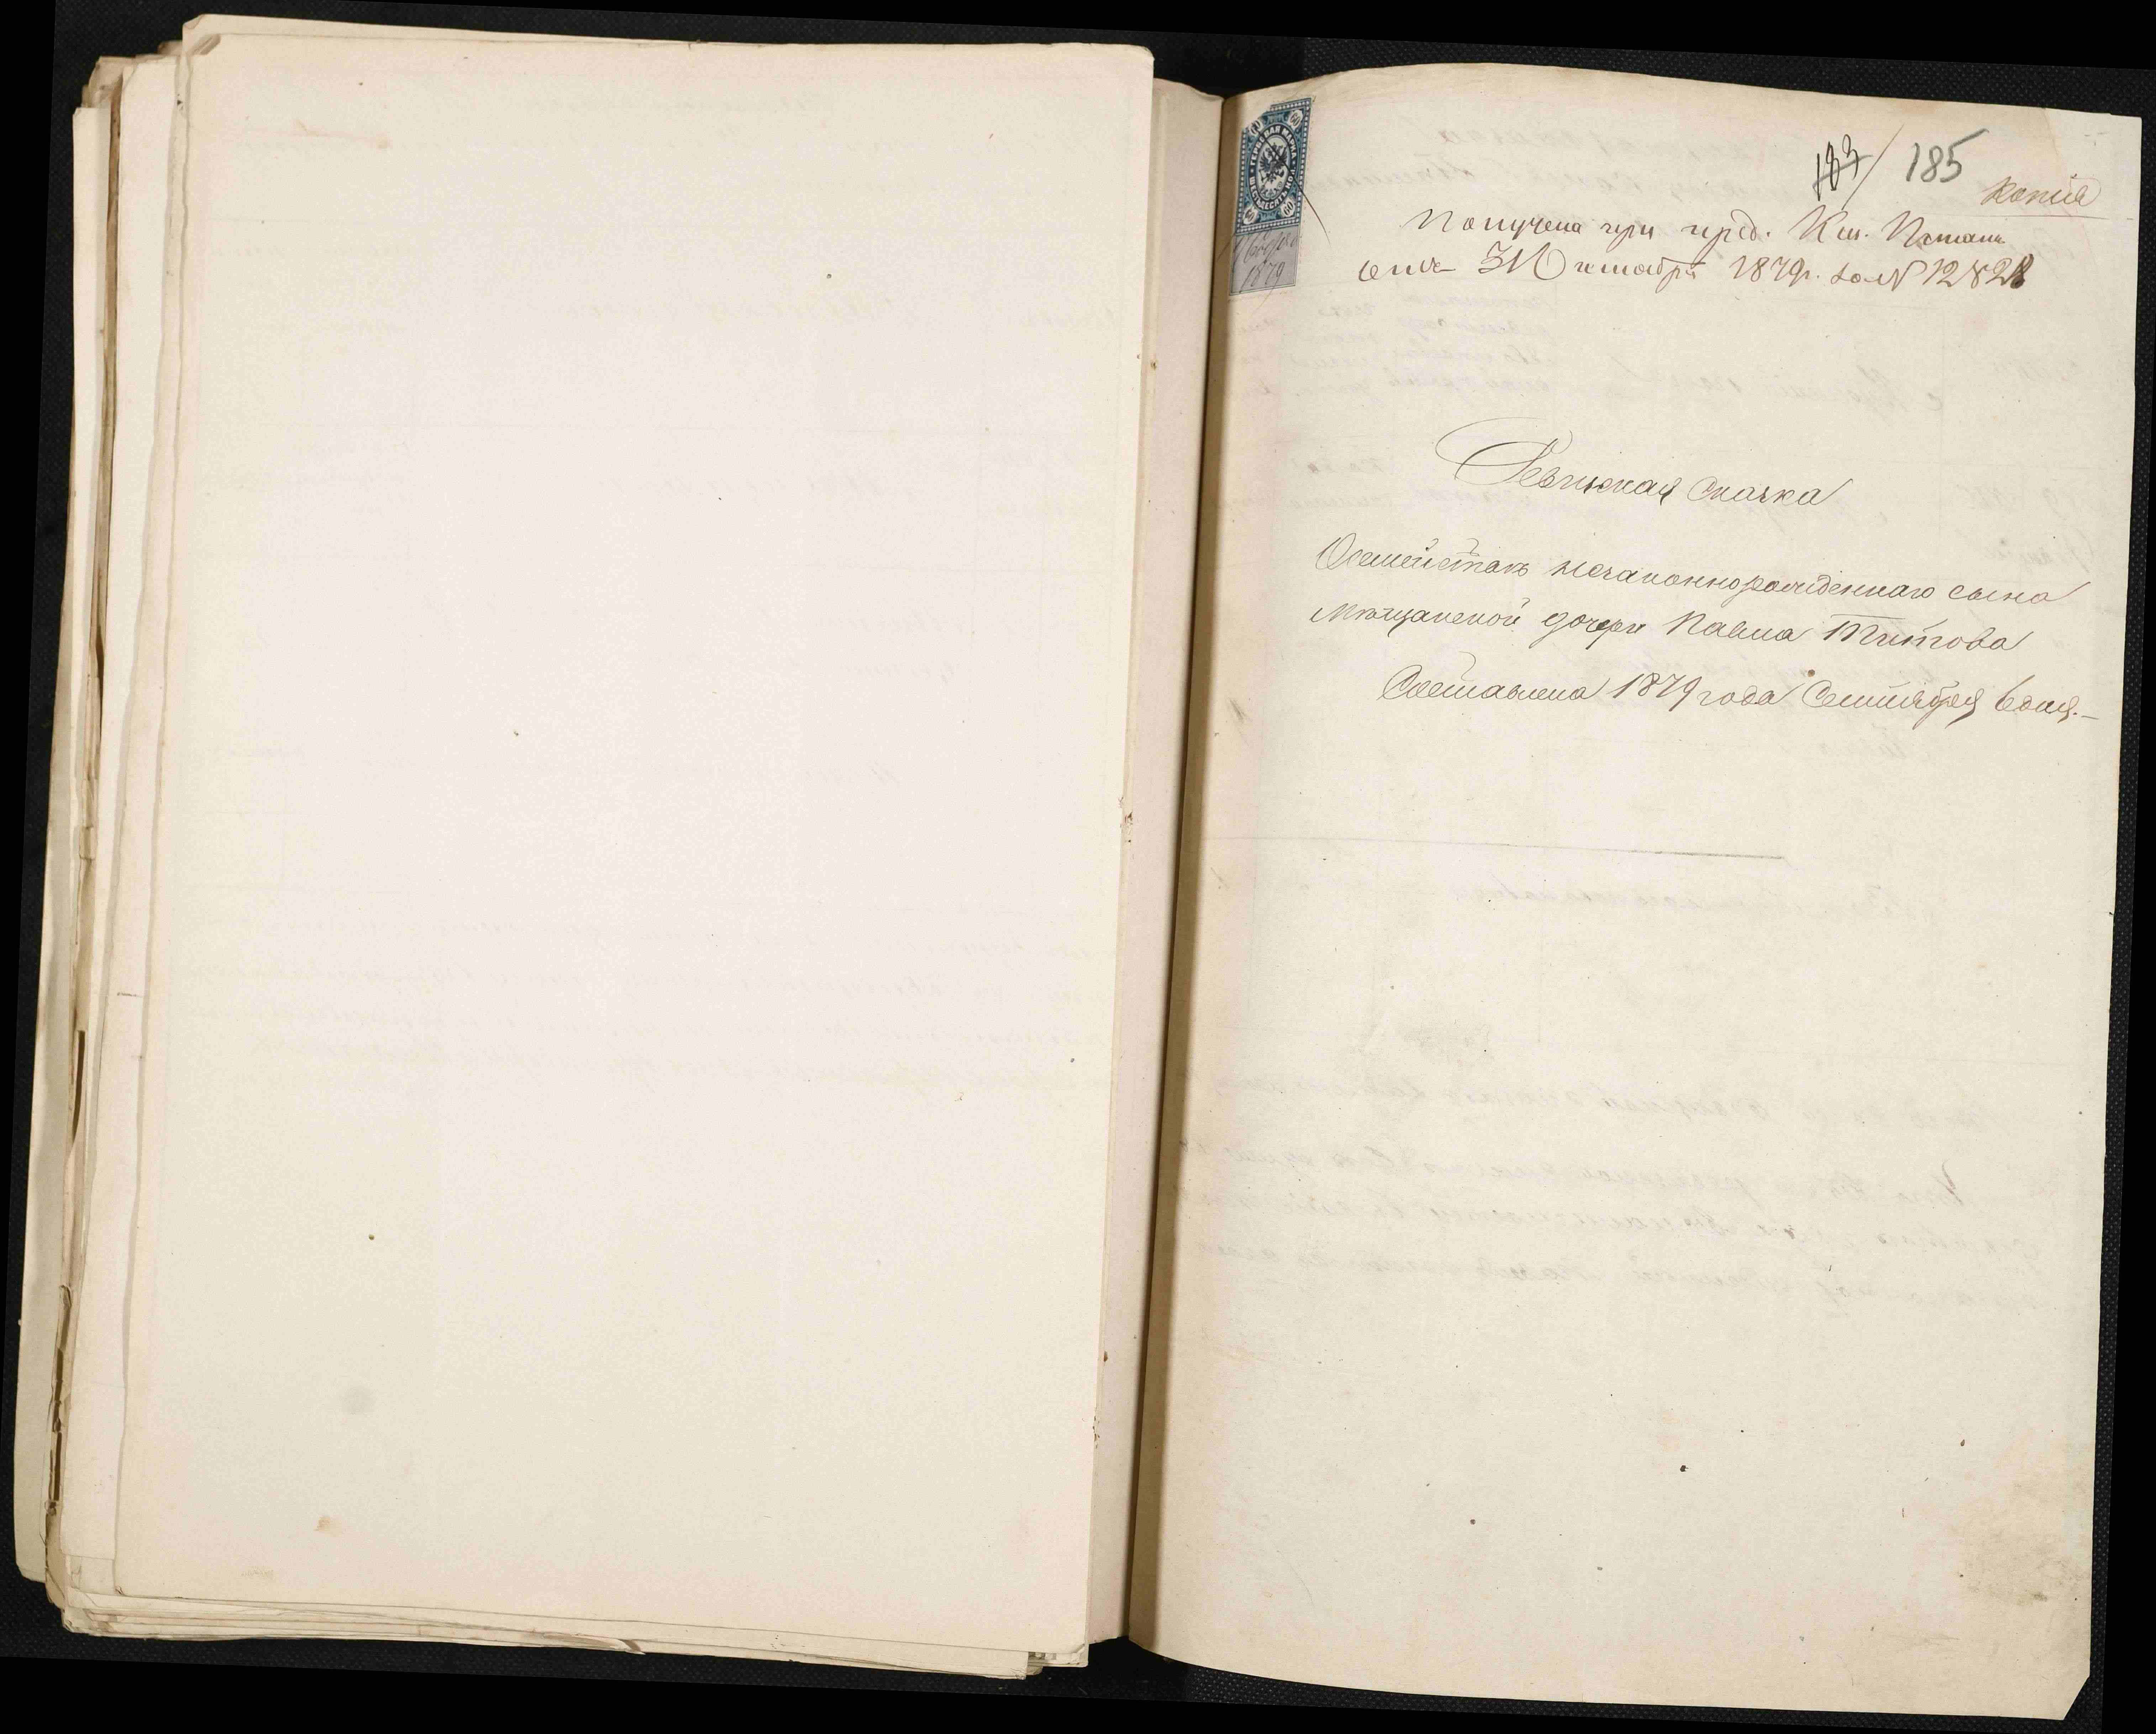 183/ 185
Копія
Получена при пред. Каз. Палаты
отъ 31 Октября 1879г. за N 12828
60 60
ГЕРБОВАЯ МАРКА
ШЕСТЬДЕСЯТЪ КОП.
60 60
1879
Ревизская сказка
О семействѣ незаконнорожденнаго сына
Мѣщанской дочери Павла Титова
Составлена 1879 года Сентября 6 дня.—